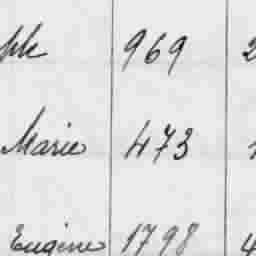 969
Marie 473
Eugène 1798